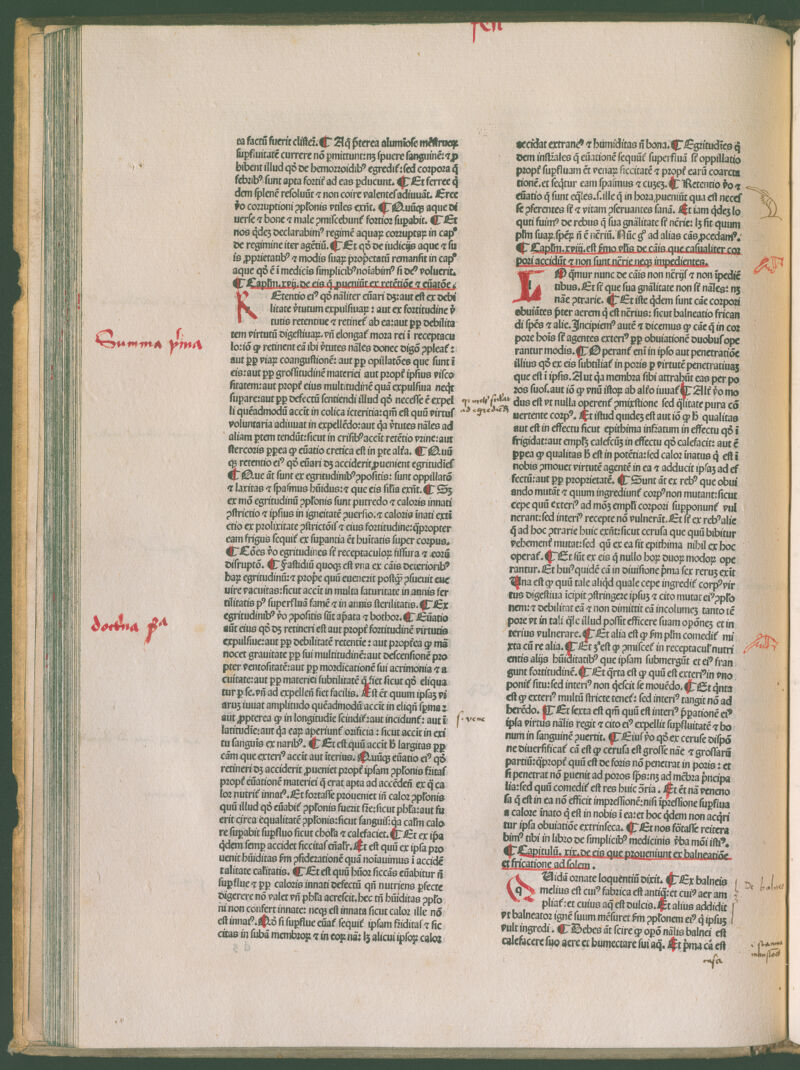 fen
ta factū fuerit clisteꝛ. ¶ Aq̄ p̄terea alumīose mēstruoꝝ
supfluitatē currere nō ꝑmittunt: nꝫ spuere sanguinē: ⁊ ꝓ
hibent illud qđ de hemoroidibꝰ egredit᷑: sed corpora q̄
febribꝰ sunt apta fortit᷑ ad eas ꝑducunt. ¶ Et ferree q̄
dem splenē resoluūt ⁊ non coire valentes adiuuāt. Eree
v̄o corruptioni ꝯplonis vtiles exn̄t. ¶ Quūqꝫ aque di
uerse ⁊ bone ⁊ male ꝑmiscebunt᷑ fortior supabit. ¶ Et
nos qđeꝫ declarabimꝰ regimē aquaꝝ corruptaꝝ in capº
de regimine iter agētiū. ¶ Et qđ de iudicijs aque ⁊ su
is ꝓprietatibꝰ ⁊ modis suaꝝ ꝓpetatū remansit in capº
aque qđ ē ī medicis simplicibꝰ noīabimꝰ si deꝰ voluerit.
¶ Caplm. xvij. de eis q̄ ꝓueniūt ex retētiōe ⁊ euatōe.
REtentio eiꝰ qđ nāliter euari dꝫ: aut est ex debi
litate v̄tutum expulsiuaꝝ: aut ex fortitudine v̄
tutis retentiue ⁊ retinet᷑ ab ea: aut ꝓp debilita
Summa p̄ma
tem virtutū digestiuaꝝ. vn̄ elongat᷑ mora rei ī receptacu
lo: iō ꝙ retinent eā ibi v̄tutes nāles donec digō ꝯpleat᷑:
aut ꝓp viaꝝ coangustionē: aut ꝓp opillatōes que sunt ī
eis: aut ꝓp grossitudinē materiei aut ꝓpt᷑ ipsius visco
sitatem: aut ꝓpt᷑ eius multitudinē quā expulsiua neqt᷑
supare: aut ꝓp defectū sentiendi illud qđ necesse ē expel
li quēadmodū accit in colica ictericia: qm̄ est quū virtus
voluntaria adiuuat in expellēdo: aut qꝛ v̄tutes nāles ad
aliam ptem tendūt: sicut in crisibꝰ accit retētio vrine: aut
stercoris ꝓpea ꝙ euatio cretica est in pte alt᷑a. ¶ Quū
qꝫ retentio eiꝰ qđ euari dꝫ acciderit ꝓuenient egritudies
¶ Que āt sunt ex egritudinibꝰ ꝯpositis: sunt oppillatō
⁊ laxitas ⁊ spasmus hūidus: ⁊ que eis silia exn̄t. ¶ Sꝫ
ex mō egritudinū ꝯplonis sunt putredo ⁊ caloris innati
ꝯstrictio ⁊ ipsius in igneitatē ꝯuersio. ⁊ caloris inati exti
ctio ex prolixitate ꝯstrictōis ⁊ eius fortitudine: q̄ꝓpter
eam frigus sequit᷑ ex supantia et hūitatis super corpus.
¶ Cōes v̄o egritudines st᷑ receptaculoꝝ fissura ⁊ eorū
disruptō. ¶ Fastidiū quoqꝫ est vna ex cāis deterioribꝰ
haꝝ egritudinū: ⁊ prop̄e quū euenerit postq̄ꝫ ꝯsueuit eue
uire vacuitas: sicut accit in multa saturitate in annis fer
tilitatis pꝰ superfluā famē ⁊ in annis sterilitatis. ¶ Ex
egritudinibꝰ v̄o ꝯpositis sūt ap̄ata ⁊ bothor. ¶ Euatio
doctrina pª
aūt eius qđ dꝫ retineri est aut propt᷑ fortitudinē virtutis
expulsiue: aut ꝓp debilitatē retentiue: aut propsea ꝙ mā
nocet grauitate ꝓp sui multitudinē: aut descensionē pro
pter ventositatē: aut ꝓp mordicationē sui acrimonia ⁊ a
cuitate: aut ꝓp materiei subtilitatē q̄ fiet sicut qđ eliqua
tur ꝑ se. vn̄ ad expellen̄ fiet facilis. Est ēt quum ipsaꝫ vi
aruꝫ iuuat amplitudo quēadmodū accit in eliqn̄ spmā:
aut ꝓpterea ꝙ in longitudie scindit᷑: aut incidunt᷑: aut ī
latitudie: aut qꝛ eaꝝ aperiunt᷑ orificia: sicut accit in exi
s. vene
tu sanguis ex naribꝰ. ¶ Et est quū accit ħ largitas ꝓp
cām que exteriꝰ accit aut iterius. Quūqꝫ euatio eiꝰ qđ
retineri dꝫ acciderit ꝓueniet propt᷑ ipsam ꝯplonis frīitas
propt᷑ euationē materiei q̄ erat apta ad accedēn ex q̄ ca
lor nutrit᷑ innatꝰ. Et fortasse prouenient in̄ calor ꝯplonis
quū illud qđ euabit᷑ ꝯplonis fuerit frīe: sicut phla: aut fu
erit circa equalitatē ꝯplonis: sicut sanguis: qꝛ calm̄ calo
re supabit supfluo sicut chola ⁊ calefaciet. ¶ Et ex ip̄a
qđem semp accidet siccitas eūalr̄. Et est quū ex ipsa pro
uenit hūiditas s̄m ꝯsiderationē quā noīauimus ī accidē
talitate calitatis. ¶ Et est quū hūor siccās euabitur n̄
supflue ⁊ ꝓp caloris innati defectū qn̄ nutriens pfecte
digerere nō valet vn̄ phla acrescit. hec tn̄ hūiditas ꝯplo
ni non confert innate: neqꝫ est innata sicut calor ille nō
est innatꝰ. Qꝫ n̄ supflue euat᷑ sequit᷑ ipsam frīditas ⁊ sic
citas in subā membroꝝ ⁊ in eoꝝ nā: lꝫ alicui ipsoꝝ calor
accidat extraneꝰ ⁊ humiditas n̄ bona. ¶ Egritudīes q̄
dem instr̄ales q̄ euationē sequūt᷑ superfluā st᷑ oppillatio
propt᷑ supfluam ēt venaꝝ siccitatē ⁊ propt᷑ earū coarcta
tionē. et seq̄tur eam spasmus ⁊ cuzeꝫ. ¶ Retentio v̄o ⁊
euātio q̄ sunt eq̄les. s. ille q̄ in hora ꝓueniūt qua est necēs
se ꝯferentes st᷑ ⁊ vitam ꝯseruantes sanā. ¶ Et iam qđeꝫ lo
quti fuimꝰ de rebus q̄ sua gn̄alitate st᷑ nērie: lꝫ sit quum
plm̄ suaꝝ spēꝝ n̄ ē nēriū. Nūc g̊ ad alias cās ꝓcedamꝰ.
¶ Caplm. xviij. est s̄mo vl̄is de cāis que casualiter cor
pori accidūt ⁊ non sunt nērie neqꝫ impedientes.
LOqmur nunc de cāis non nērijs ⁊ non ip̄edie
tibus. Et st᷑ que sua gnālitate non st᷑ nāles: nꝫ
nāe ꝯtrarie. ¶ Et iste qđem sunt cāe corpori
obuiātes p̄ter aerem q̄ est nērius: sicut balneatio frican
di spēs ⁊ alie. Incipiemꝰ autē ⁊ dicemus ꝙ cāe q̄ in cor
pore hoīs st᷑ agentes exteriꝰ ꝓp obuiationē duobꝰ ope
rantur modis. ¶ Operant᷑ enī in ipso aut penetratiōe
illius qđ eo ex subtiliat᷑ in poris p virtutē penetratiuaꝫ
que est ī ipsis. Aut qꝛ membra sibi attrahūt eas per po
ros suos. aut iō ꝙ vnū istoꝝ ab alt᷑o iuuat᷑. ¶ Alt᷑ v̄o mo
dus est vt nulla operent᷑ ꝯmixtione sed q̄litate pura cō
uertente corpꝰ. ¶ Et istud quideꝫ est aut iō ꝙ ħ qualitas
aut est in effectu sicut epithima infr̄iatum in effectu qđ ī
frigidat: aut emplm̄ calefcūꝫ in effectu qđ calefacit: aut ē
ꝓpea ꝙ qualitas ħ est in potētia: sed calor inatus q̄ est ī
nobis ꝓmouet virtutē agentē in ea ⁊ adducit ipsaꝫ ad ef
fectū: aut ꝓp proprietatē. ¶ Sunt āt ex rebꝰ que obui
ando mutāt ⁊ quum ingrediunt᷑ corpꝰ non mutant: sicut
cepe quū exteriꝰ ad mōꝫ empli corpori supponunt᷑ vul
nerant: sed interiꝰ recepte nō vulnerāt. Et st᷑ ex rebꝰ alie
q̄ ad hoc ꝯtrarie huic exn̄t: sicut cerusa que quū bibitur
vehement᷑ mutat: sed qū ex ea fit epithima nihil ex hoc
operat᷑. ¶ Et sūt ex eis q̄ nullo hoꝝ duoꝝ modoꝝ ope
rantur. Et huiꝰ quidē cā in diuisione p̄ma sex reruꝫ exīt
Una est ꝙ quū tale aliqđ quale cepe ingredit᷑ corpꝰ vir
tus digestiua īcipit ꝯstringere ipsuꝫ ⁊ cito mutat eiꝰ ꝯplo
nem: ⁊ debilitat eā ⁊ non dimittit eā incolumeꝫ tanto tē
pore vt in tali q̄le illud possit efficere suam opōneꝫ et in
terius vulnerare. ¶ Et alia est ꝙ s̄m plm̄ comedit᷑ mi
xta cū re alia. ¶ Et 3ª est ꝙ ꝑmiscet᷑ in receptaculꝭ nutri
entis alijs hūiditatibꝰ que ipsam submergūt ⁊ eiꝰ fran
gunt fortitudinē. ¶ Et q̄rta est ꝙ quū est exteriꝰ in vno
ponit᷑ situ: sed interiꝰ non q̄escit se mouēdo. ¶ Et q̄nta
est ꝙ exteriꝰ multū stricte tenet᷑: sed interiꝰ tangit nō ad
herēdo. ¶ Et sexta est qm̄ quū est interiꝰ p̄pationē eiꝰ
ipsa virtus nālis regit ⁊ cito eiꝰ expellit supfluitatē ⁊ bo
num in sanguinē ꝯuertit. ¶ Eiꝰ v̄o qđ ex ceruse dispō
ne diuersificat᷑ cā est ꝙ cerusa est grosse nāe ⁊ grossarū
partiū: q̄ꝓpt᷑ quū est de foris nō penetrat in poris: et
si penetrat nō puenit ad poros sp̄s: nꝫ ad mēbra p̄ncipa
lia: sed quū comedit᷑ est res huic ꝯr̄ia. Et ēt nā veneno
sa q̄ est in ea nō efficit imp̄ssionē: nisi ip̄ressione supflua
a calore īnato q̄ est in nobis ī ea: et hoc qđem non acq̄ri
tur ipsa obuiatiōe extrinseca. ¶ Et nos fōtasse reitera
bimꝰ tibi in libro de simplicibꝰ medicinis v̄ba mōi istiꝰ.
¶ Capitulū. xix. de eis que proueniunt ex balneatiōe
et fricatione ad solem.
QUidā ornate loquentiū dixit. ¶ Ex balneis
melius est cuiꝰ fabrica est antiq̄: et cuiꝰ aer am
De balneis
pliat᷑: et cuius aq̄ est dulcis. Et alius addidit
vt balneatoꝝ ignē suum mēsuret s̄m ꝯplonem eiꝰ q̄ ipsuꝫ
vult ingredi. ¶ Debes āt scire ꝙ opō nālis balnei est
calefacere suo aere et humectare sui aq̄. Et p̄ma cā est